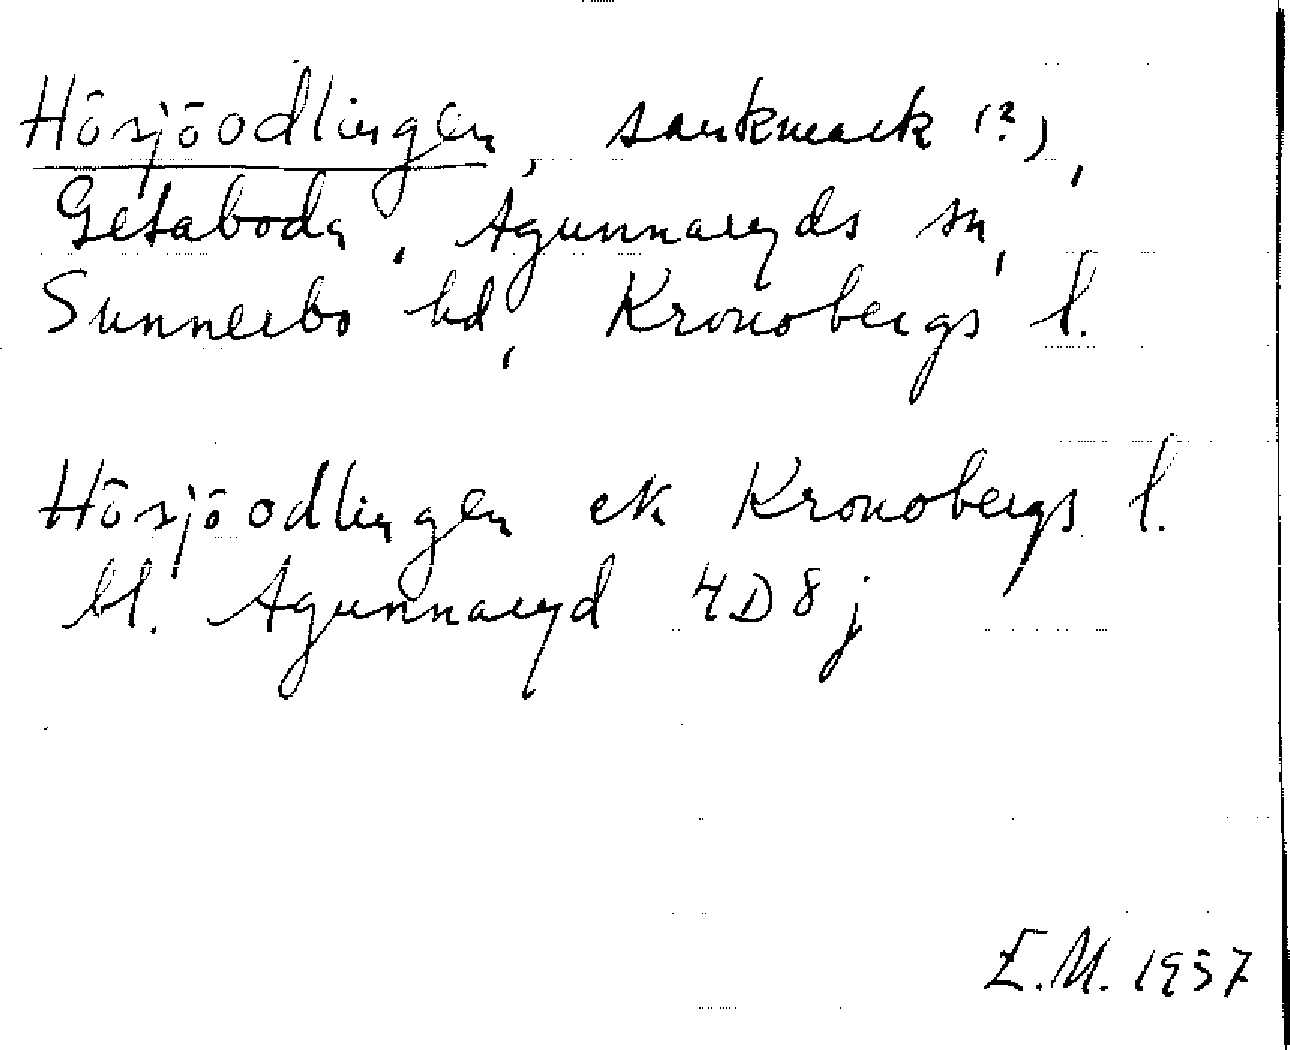 Hösjöodlingen, sankmark (?),
Getaboda, Agunnaryds sn,
Sunnerbo hd, Kronobergs l.
Hösjöodlingen ek Kronobergs l.
bl. Agunnaryd 4D8j
E.M. 1957